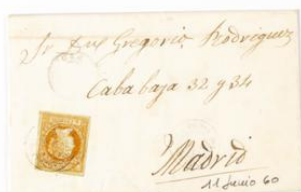 Sr Dn Gregorio Rodriguez
Caba baja 32 y 34
Madrid
11 Junio 60